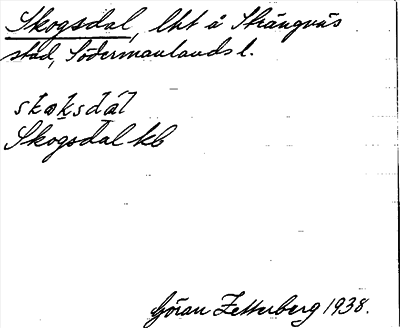 Skogsdal, lht å Skängnäs
stad, Södermanlands l.
skoksdál
Skogsdal kb
Göran Zetterberg 1938.